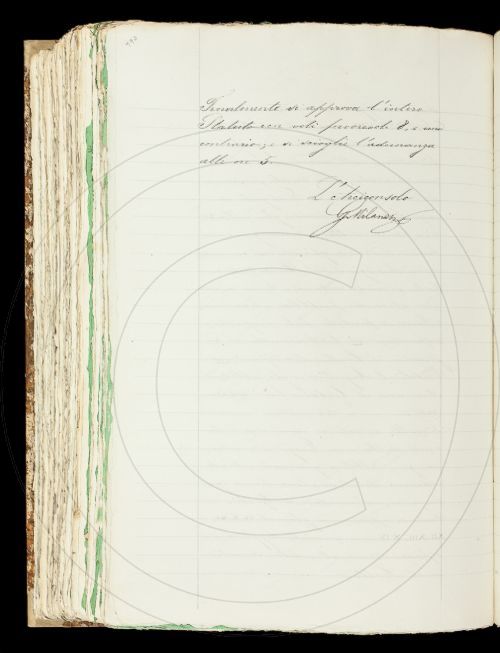 Finalmente si approva l'intero
Statuto con voti favorevoli 8, e uno
contrario; e si scioglie l'adunanza
alle ore 5.
L'Arciconsolo
G. Milanesi